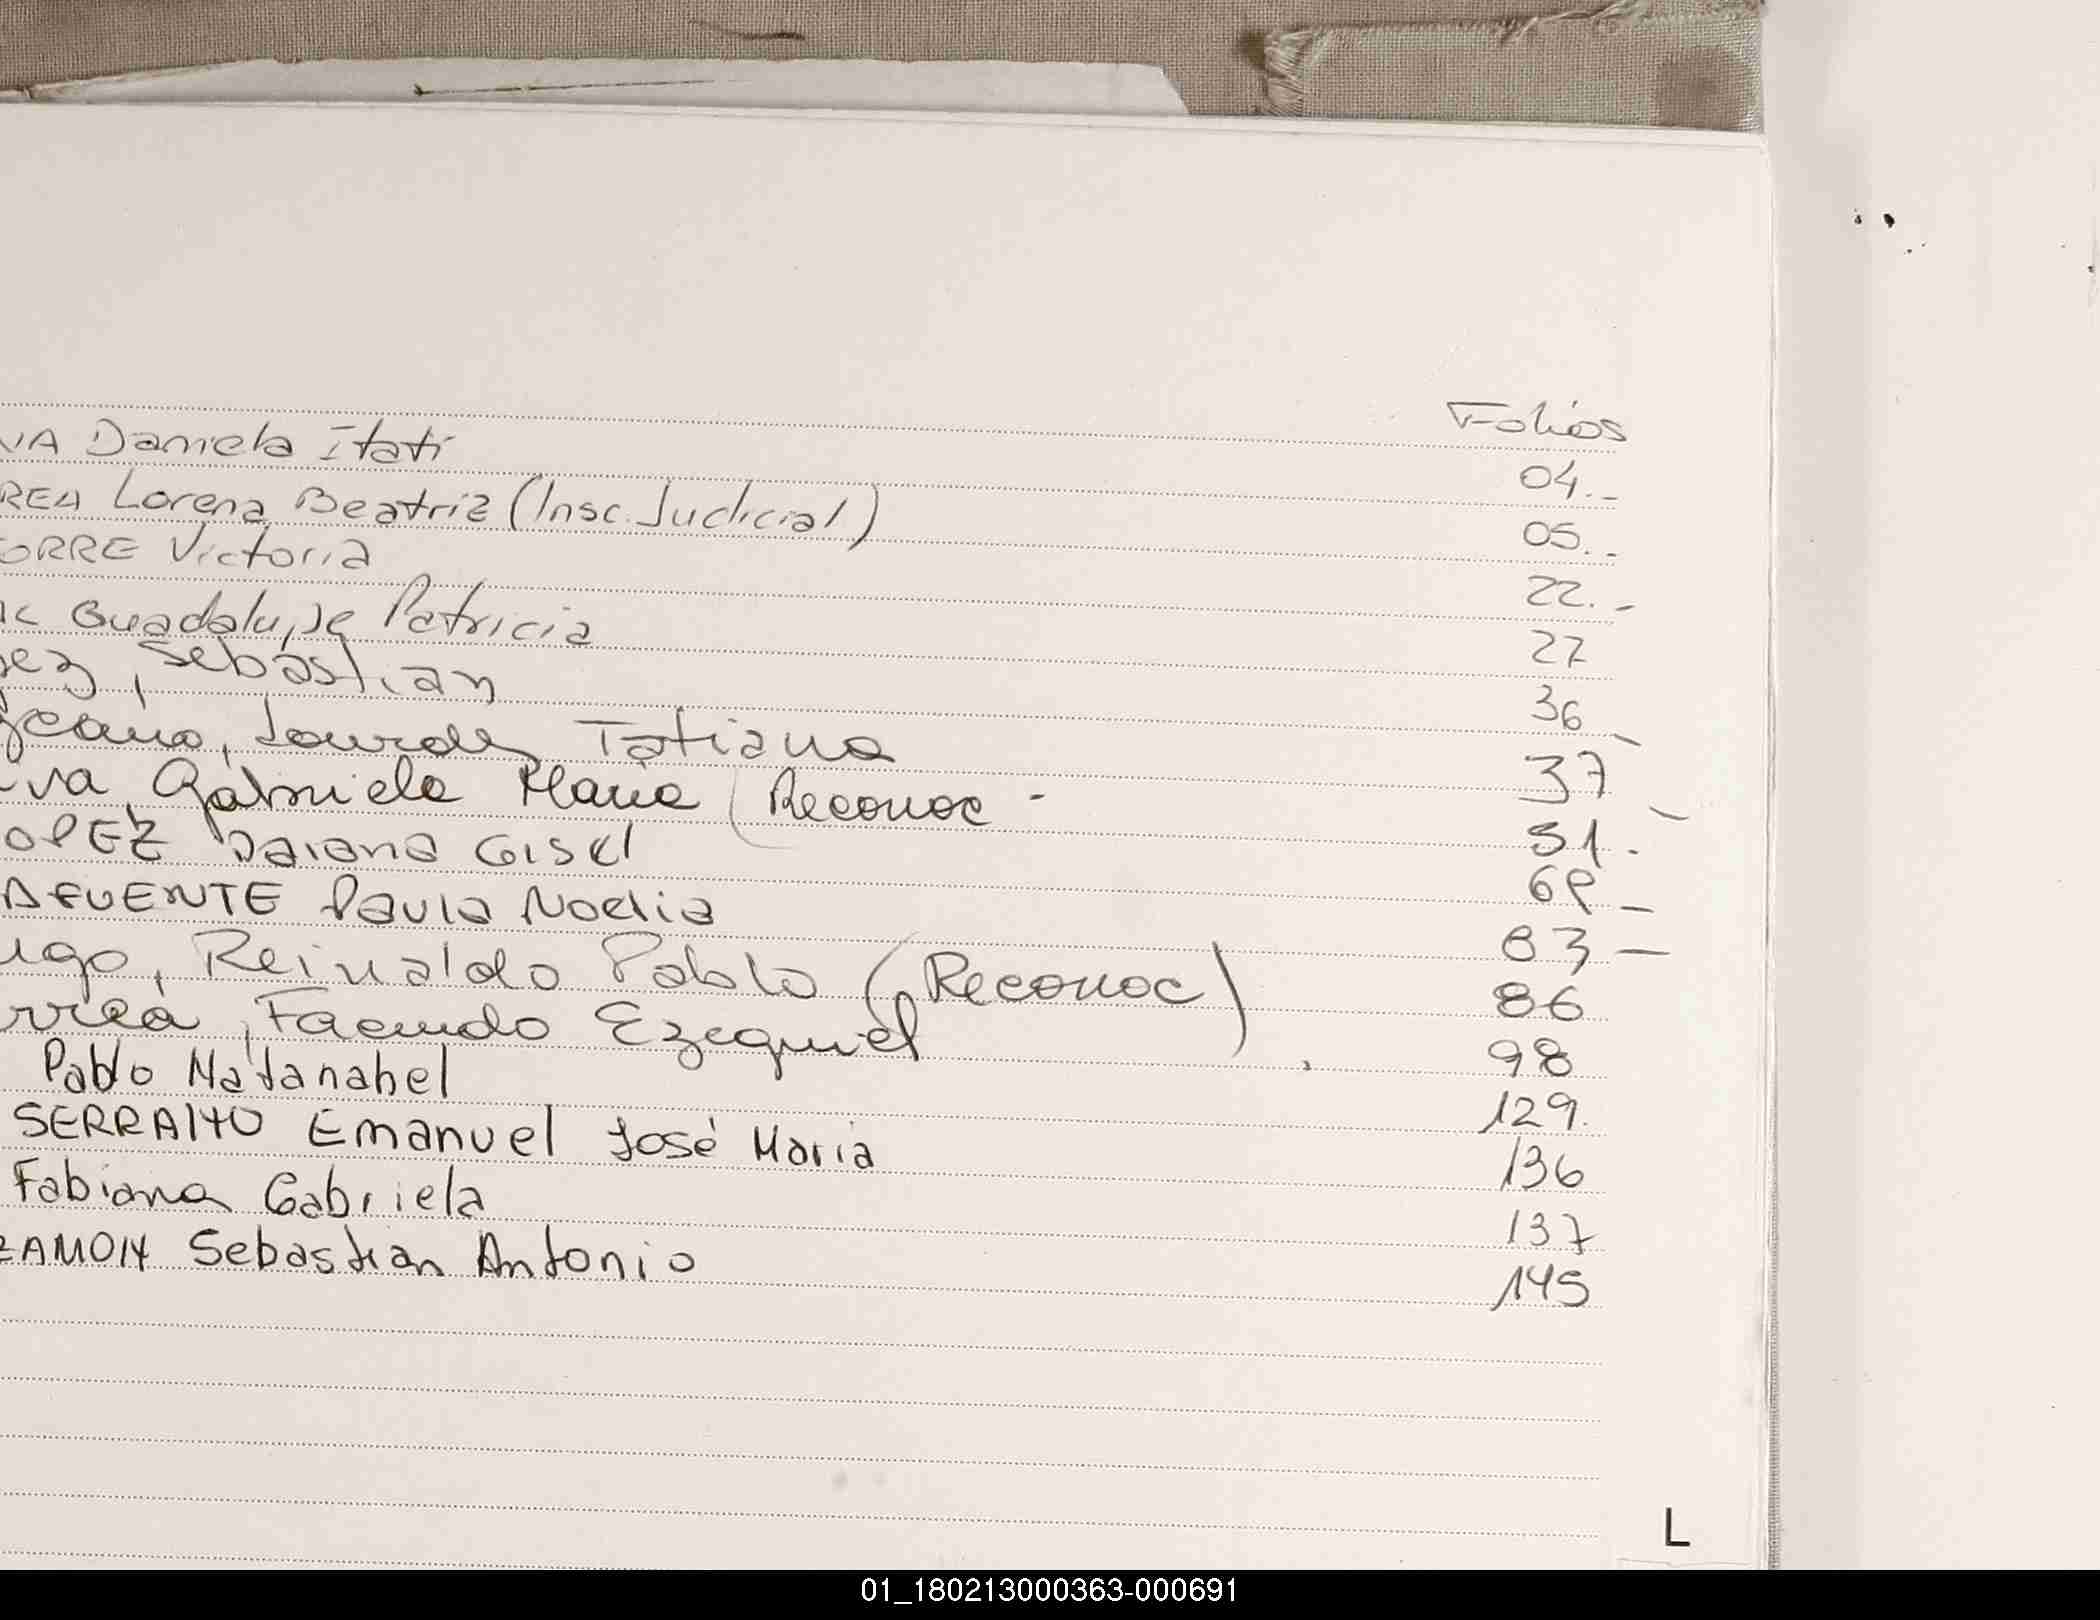 Folios
VA Daniela Itati 04.-
REA Lorena Beatriz (Insc. Judicial) 05.-
ORRE Victoria 22.-
Guadalupe Patricia 27
ez, Sebastian 36
Lourdes Tatiana 37
va, Gabriela Maria (Reconoc - 51.
OPEZ Daiana GISEl
AFUENTE Paula Noelia 83
ugo, Reinaldo Pablo (Reconoc) 86
rrea, Facundo Ezequiel 98
Pablo Natanahel 129.
Emanuel José Maria 136
Fabiana Gabriela 137
ZAMON Sebastian Antonio 145
L
01_180213000363-000691